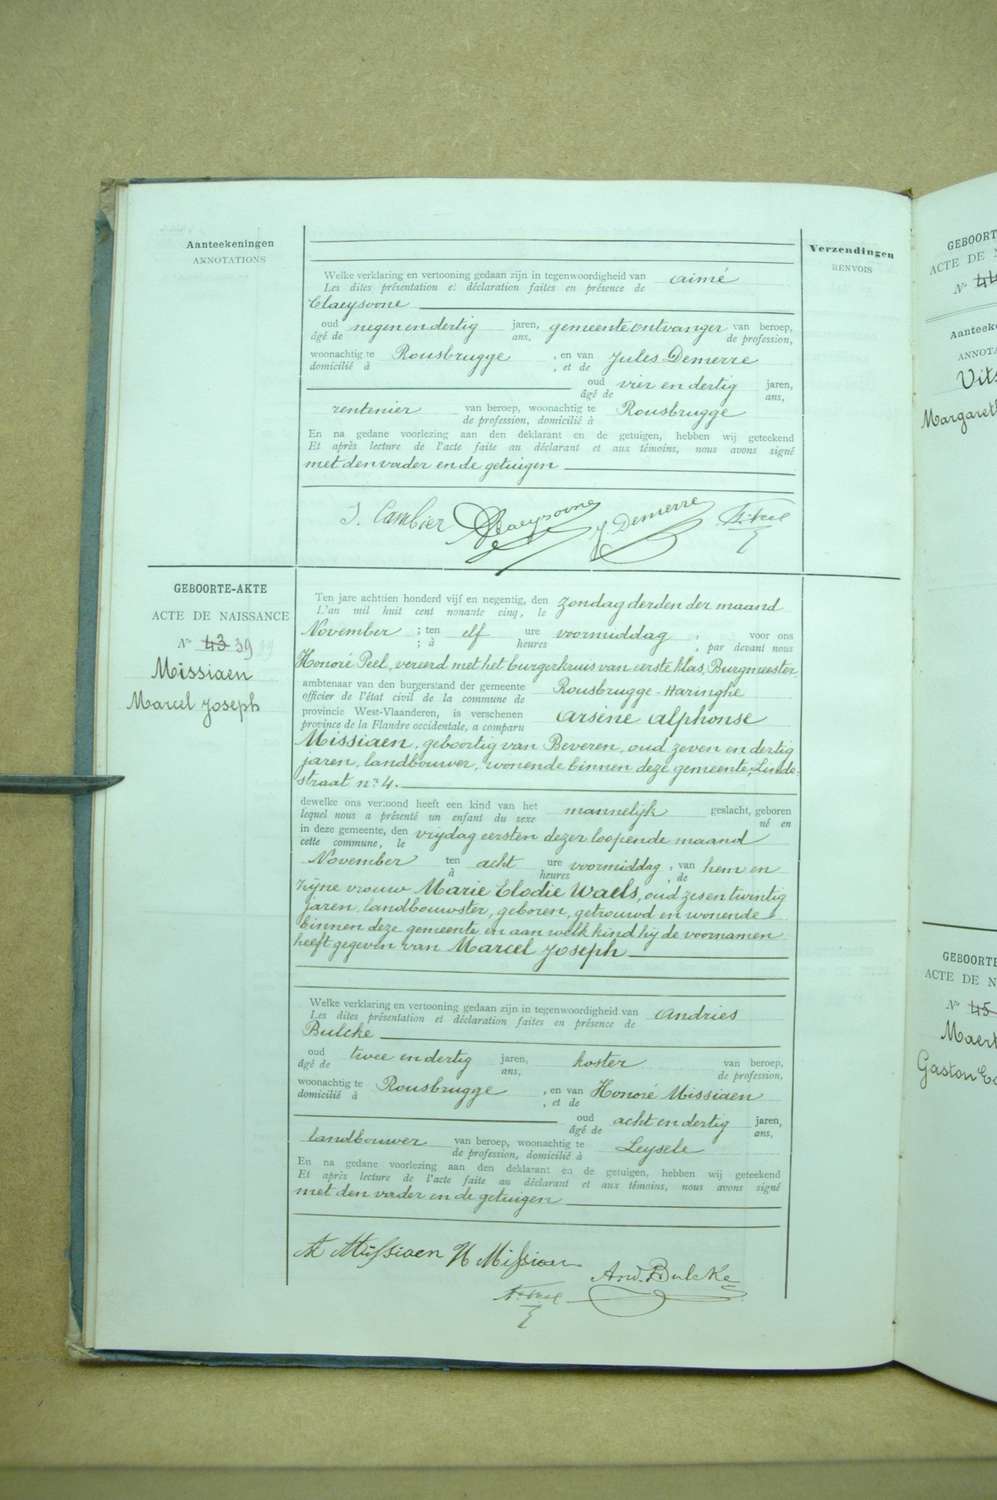 Aanteekeningen
ANNOTATIONS
Verzendingen
RENVOIS
Welke verklaring en vertooning gedaan zijn in tegenwoordigheid van Aimé
Les dites présentation et déclaration faites en présence de
Claeysoone
oud negen en dertig jaren, gemeenteontvanger van beroep,
âgé de ans, de profession,
woonachtig te Rousbrugge , en van Jules Demerre
domicilié à , et de
oud vier en dertig jaren,
âgé de ans,
rentenier van beroep, woonachtig te Rousbrugge
de profession, domicilié à
En na gedane voorlezing aan den deklarant en de getuigen, hebben wij geteekend
Et après lecture de l'acte faite au déclarant et aux témoins, nous avons signé
met den vader en de getuigen
J. Cambier Claeysoone J. Demerre H. Peel
GEBOORTE-AKTE
ACTE DE NAISSANCE
No 43 39
Missiaen
Marcel Joseph
Ten jare achttien honderd vijf en negentig, den zondag derden der maand
L'an mil huit cent nonante cinq, le
November ; ten elf ure voormiddag , voor ons
; à heures , par devant nous
Honoré Peel, vereerd met het burgerkruis van eerste klas, Burgmeester
ambtenaar van den burgerstand der gemeente Rousbrugge-Haringhe
officier de l'état civil de la commune de
provincie West-Vlaanderen, is verschenen Arsène Alphonse
province de la Flandre occidentale, a comparu
Missiaen, geboortig van Beveren, oud zeven en dertig
jaren, landbouwer, wonende binnen deze gemeente, Linde-
straat no 4.
dewelke ons vertoond heeft een kind van het mannelijk geslacht, geboren
lequel nous a présenté un enfant du sexe né en
in deze gemeente, den vrijdag eersten dezer loopende maand
cette commune, le
November ten acht ure voormiddag , van hem en
à heures , de
zijne vrouw Marie Elodie Waels, oud zes en twintig
jaren, landbouwster, geboren, getrouwd en wonende
binnen deze gemeente en aan welk kind hij de voornamen
heeft gegeven van Marcel Joseph
Welke verklaring en vertooning gedaan zijn in tegenwoordigheid van Andries
Les dites présentation et déclaration faites en présence de
Bulcke
oud twee en dertig jaren, koster van beroep,
âgé de ans, de profession,
woonachtig te Rousbrugge , en van Honoré Missiaen
domicilié à , et de
oud acht en dertig jaren,
âgé de ans,
landbouwer van beroep, woonachtig te Leysele
de profession, domicilié à
En na gedane voorlezing aan den deklarant en de getuigen, hebben wij geteekend
Et après lecture de l'acte faite au déclarant et aux témoins, nous avons signé
met den vader en de getuigen
A Missiaen H Missiaen And. Bulcke
H. Peel
GEBOORT
ACTE DE N
No 44
Aanteeke
ANNOTA
Vits
Margaret
GEBOORTE
ACTE DE N
No 45
Maer
Gaston